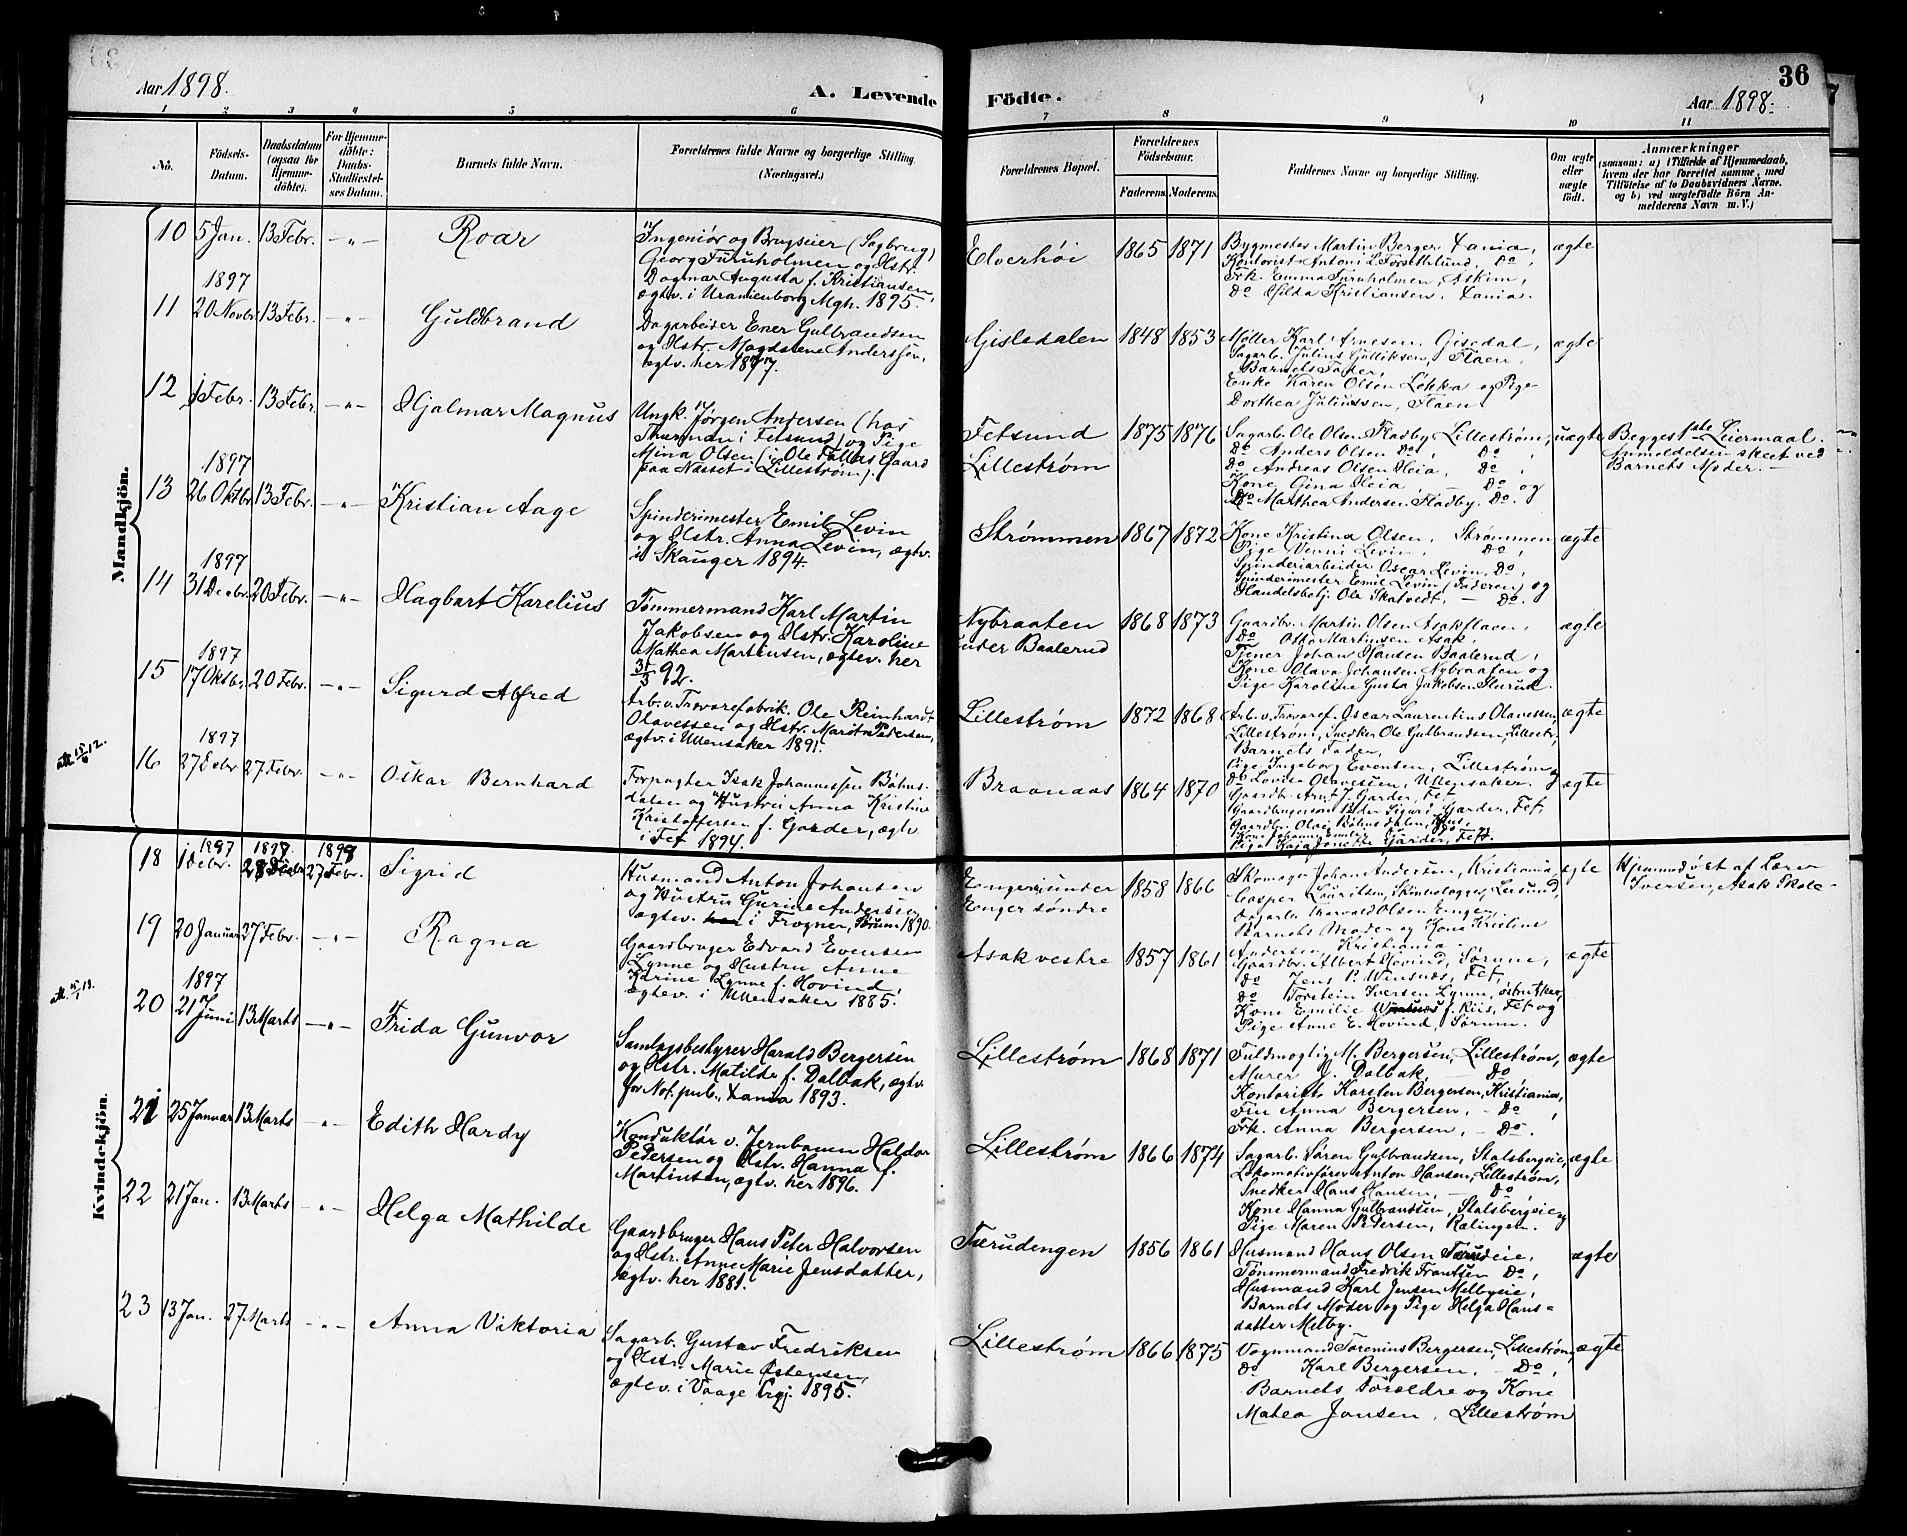 36
Aar 1898.
A. Levende Födte.
Aar 1898.
1 2 3 4 5 6 7 8 9 10 11
No.
Födsels-Datum.
Daabsdatum (ogsaa for Hjemme-döbte).
For Hjemme-döbte: Daabs-Stadfæstel-ses Datum.
Barnets fulde Navn.
Forældrenes fulde Navne og borgerlige Stilling.
(Næringsvei.)
Forældrenes Bopæl.
Forældrenes Födselsaar.
Faderens. Moderens.
Faddernes Navne og borgerlige Stilling.
Om ægte eller uægte födt.
Anmærkninger
(saasom: a) i Tilfælde af Hjemmedaab, hvem der har forrettet samme, med Tilföielse af to Daabsvidners Navne, og b) ved uægtefödte Börn Anmelderens Navn m. V.)
Mandkjön.
10 5 Jan. 13 Febr. -„- Roar
Ingeniør og Brugseier (Sagbrug)
Georg Furuholmen og Hstr.
Dagmar Augusta f. Kristiansen,
ægtv. i Uranienborg Mgh. 1895.
Elverhöi 1865 1871
Bygmester Martin Berger, Xania,
Kontorist Antoni L. Forsethlund, Do,
Frk. Emma Furuholmen, Askim,
Do Hilda Kristiansen, Xania.
ægte
1897
11 20 Novbr. 13 Febr. -„- Guldbrand
Dagarbeider Ener Gulbrandsen
og Hstr. Magdalene Anderssen,
ægtv. her 1877.
Gisledalen 1848 1853
Møller Karl Arnesen, Gisedal,
Sagarb. Julius Gulliksen, Flaen,
Barnets Fader,
Enke Karen Olsen Løkka og Pige
Dorthea Juliussen, Flaen.
ægte
12 1 Febr. 13 Febr. -„- Hjalmar Magnus
Ungk. Jørgen Andersen (hos
Thurman i Fetsund) og Pige
Mina Olsen (i Ole Gaard
paa Næsset i Lillestrøm).
Fetsund
Lillestrøm
1875 1876
Sagarb. Ole Olsen Fladby Lillestrøm,
Do Anders Olsen Do, Do,
Do Andreas Olsen Heia, Do,
Kone Gina Heia, - Do og
Do Marthea Andersen Fladby, Do.
uægte
Begges 1ste Leiermaal.
Anmeldelsen skeet ved
Barnets Moder. -
1897
13 26 Oktbr. 13 Febr. -„- Kristian Aage
Spinderimester Emil Levin
og Hstr. Anna Levin, ægtv.
i Skauger 1894.
Strømmen 1867 1872
Kone Kristina Olsen, Strømmen
Pige Venni Levin, Do,
Spinderiarbeider Oscar Levin, Do,
Spinderimester Emil Levin (Faderen) og
Handelsbetj. Ole Skatvedt, - Do.
ægte
1897
14 31 Decbr. 20 Febr. -„- Hagbart Karelius
Tømmermand Karl Martin
Jakobsen og Hstr. Karoline
Mathea Martinsen, ægtv. her
3/5 92.
Nybraaten
under Baalerud
1868 1873
Gaardbr. Martin Olsen Asakflaen,
Do Otto Martinsen Asak,
Tjener Johan Hansen Baalerud,
Kone Olava Johansen Nybraaten og
Pige Karoline Gusta Jakobsen Slurud.
ægte
1897
15 17 Oktbr. 20 Febr. -„- Sigurd Alfred
Arb. v. Trævarefabrik. Ole Reinhardt
Olavessen og Hstr. Marit Pedersen,
ægtv. i Ullensaker 1891.
Lillestrøm 1872 1868
Arb. v. Trævaref. Oscar Laurentius Olavessen,
Lillestrøm, Snedker Ole Gulbrandsen, Lillestr.,
Barnets Fader,
Pige Ingeborg Evensen, Lillestrøm og
Do Lovise Olavesen, Ullensaker.
ægte
1897
16 27 Debr 27 Febr. -„- Oskar Bernhard
Forpagter Isak Johannessen Böhns-
dalen og Hustru Anna Kristine
Kristoffersen f. Garder, ægtv.
i Fet 1894.
Braanaas 1864 1870
Gaardb. Arnt J. Garder, Fet
Gaardbrugersøn Peder Sigurd Garder, Fet,
Pige Kaja Jonette Garder, Fet.
ægte
Kvindekjön.
1897 1897 1898
18 1 Debr. 28 Debr 27 Febr. Sigrid
Husmand Anton Johansen
og Hustru Gurine Andersen
ægtev. her i Frogner, Sørum 1890.
Enger under
Enger söndre
1858 1866
Skomager Johan Andersen, Kristiania,
Casper Lauritsen, Skinnelægger, Leisund,
Dagarb. Tharvald Olsen Enger,
Barnets Moder og Kone Kristine
Andersen, Kristiania.
ægte
Hjemmedøbt af Lærer
Iversen, Asak Skole-
19 20 Januar 27 Febr. -„- Ragna
Gaardbruger Edvard Evensen
Lynne og Hustru Anne
Karine Lynne f. Hovind,
ægtev. i Ullensaker 1885.
Asak vestre 1857 1861
Gaardbr. Albert Hovind, Sørum,
Do Jens P. Wensnæs, Fet,
Do Torstein Iversen Lynne,
Kone Emilie f. Riis, Fet og
Pige Anne E. Hovind, Sørum.
ægte
1897
20 21 Juni 13 Marts -„- Frida Gunvor
Samlagsbestyrer Harald Bergersen
og Hstr. Matilde f. Dalbak, ægtv.
for Not. pub., Xania 1893.
Lillestrøm 1868 1871
Fuldmægtig M. Bergersen, Lillestrøm,
Murer J. Dalbak - Do
Kontorist Karsten Bergersen, Kristiania,
Fru Anna Bergersen, - Do,
Frk. Anna Bergersen, - Do.
ægte
21 25 Januar 13 Marts -„- Edith Hardy
Konduktør v. Jernbanen Haldor
Pedersen og Hstr. Hanna f.
Martinsen, ægtv. her 1896.
Lillestrøm 1866 1874
Sagarb. Søren Gulbrandsen, Stalsbergeie,
Lokomotivfører Anton Hansen, Lillestrøm,
Snedker Hans Hansen, - Do
Kone Hanna Gulbrandsen, Stalsbergeie og
Pige Maren Pedersen, Rælingen.
ægte
22 21 Jan. 13 Marts -„- Helga Mathilde
Gaardbruger Hans Peter Halvorsen
og Hstr. Anne Marie Jensdatter,
ægtv. her 1881.
Tærudengen 1856 1861
Husmand Hans Olsen Tærudeie,
Tømmermand Fredrik Frantsen Do,
Husmand Karl Jensen Melbyeie,
Barnets Moder og Pige Helga Hans-
datter Melby.
ægte
23 13 Jan. 27 Marts -„- Anna Viktoria
Sagarb. Gustav Fredriksen
og Hstr. Marie Østensen,
ægtev. i Vaage Prgj. 1895.
Lillestrøm 1866 1875
Vognmand Torenius Bergersen, Lillestrøm,
Do Karl Bergersen, - Do,
Barnets Forældre og Kone
Mathea Jansen, Lillestrøm
ægte